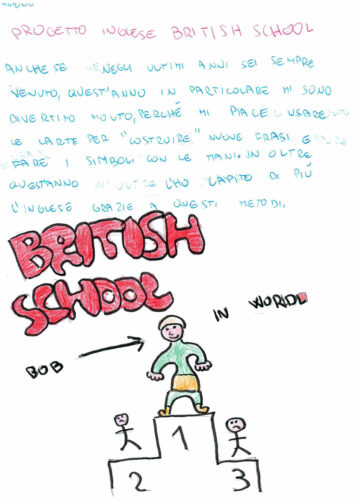 ANTONIO
PROGETTO INGLESE BRITISH SCHOOL
ANCHE SE NEGLI ULTIMI ANNI SEI SEMPRE
VENUTO, QUEST'ANNO IN PARTICOLARE MI SONO
DIVERTITO MOLTO, PERCHÉ MI PIACE USARE
LE CARTE PER "COSTRUIRE" NUOVE FRASI E
FARE I SIMBOLI CON LE MANI. INOLTRE
QUEST'ANNO L'HO CAPITO DI PIÙ
L'INGLESE GRAZIE A QUESTI METODI.
BRITISH
SCHOOL
IN WORLD
BOB
1
2
3